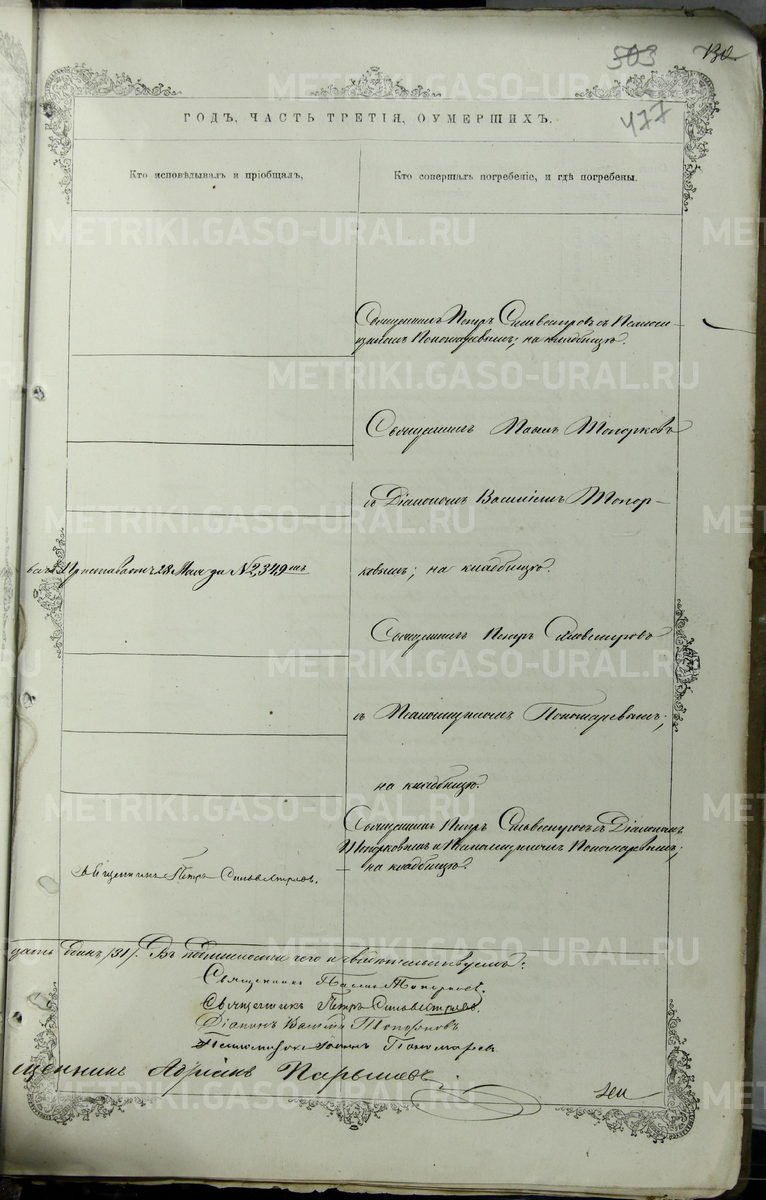 503
130
477
ГОДЪ, ЧАСТЬ ТРЕТІЯ, ОУМЕРШИХЪ.
Кто исповѣдывалъ и пріобщалъ,
Кто совершалъ погребеніе, и гдѣ погребены.
Священникъ Петръ Сильвестровъ съ Псаломщикомъ Пономаревымъ; на кладбищѣ.
Священникъ Павелъ Топорковъ
съ Діакономъ Василіемъ Топор-
Пристава отъ 28 Мая за № 2,349мъ
ковымъ; на кладбищѣ.
Священникъ Петръ Сильвестровъ
съ Псаломщикомъ Пономаревымъ;
на кладбищѣ.
Священникъ Петръ Сильвестровъ съ Діакономъ
Топорковымъ и Псаломщикомъ Пономаревымъ;
на кладбищѣ.
Священникъ Петръ Сильвестровъ.
дать одинъ /31/. Въ подлинности чего и свидѣтельствуемъ:
Священникъ Павелъ Топорковъ.
Священникъ Петръ Сильвестровъ.
Діаконъ Василій Топорковъ
Псаломщикъ Іоаннъ Пономаревъ
щенникъ Адріанъ Парышевъ
METRIKI.GASO-URAL.RU